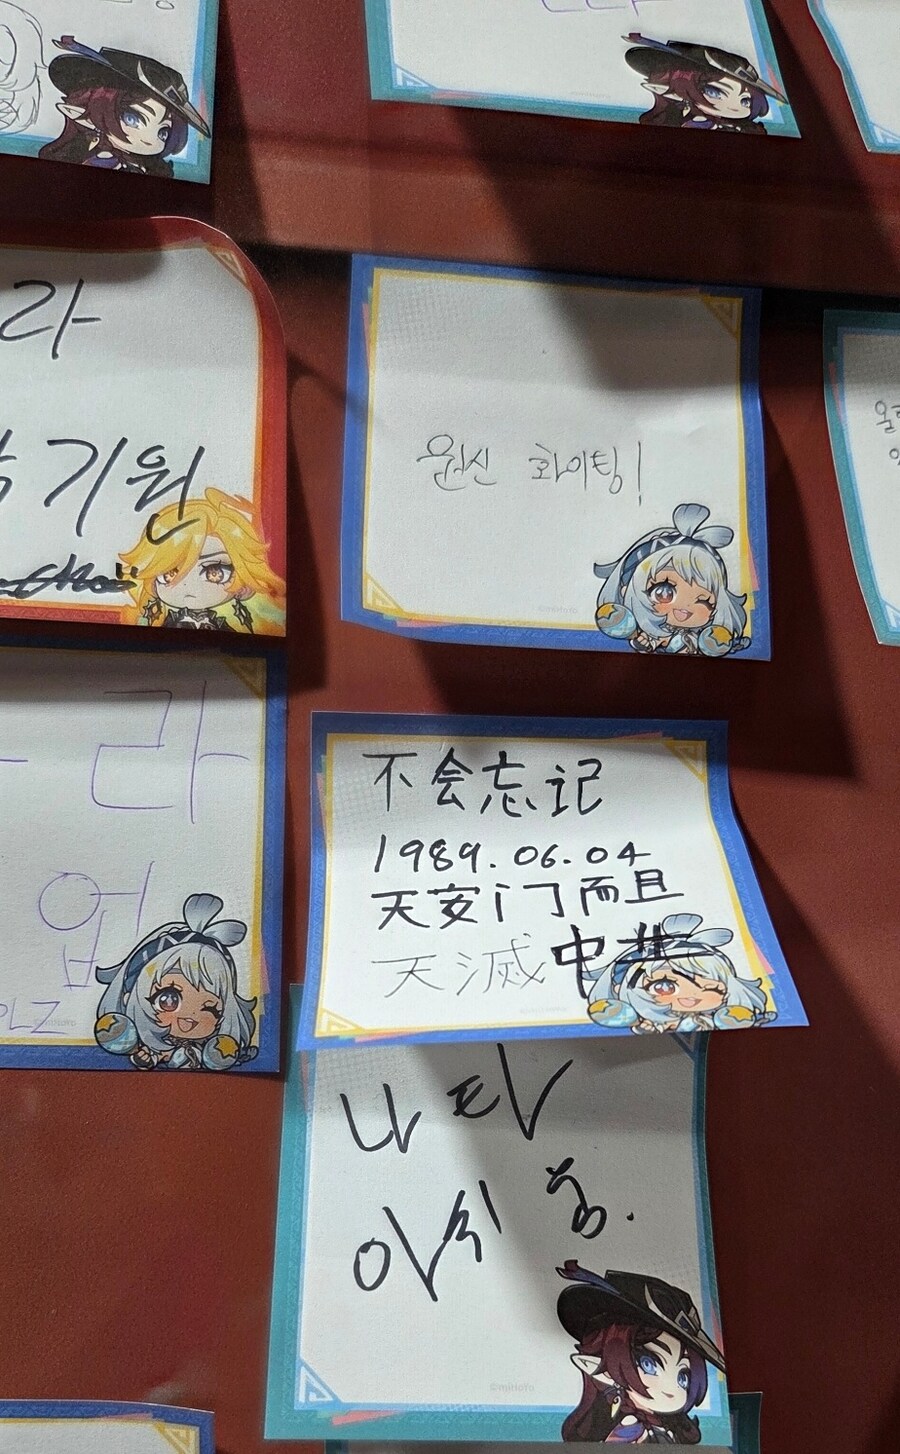 라
기원
원신 화이팅!
라
업
不会忘记
1989.06.04
天安门 而且
天滅 中共
나타
©miHoYo